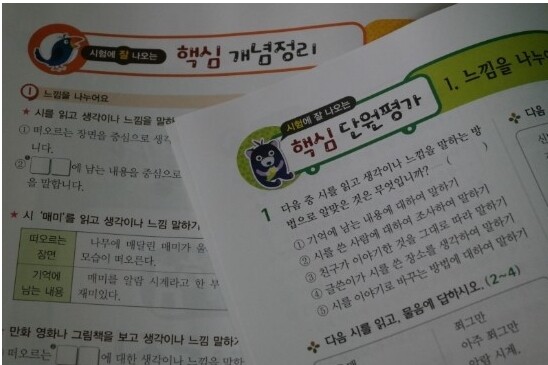 시험에 잘 나오는
핵심 개념정리
느낌을 나누어요
★ 시를 읽고 생각이나 느낌을 말하
① 떠오르는 장면을 중심으로 생각
니다.
② 에 남는 내용을 중심으로
을 말합니다.
★ 시 '매미'를 읽고 생각이나 느낌 말하기
떠오르는
장면
나무에 매달린 매미가 울
모습이 떠오른다.
기억에
남는 내용
매미를 알람 시계라고 한 부
재미있다.
만화 영화나 그림책을 보고 생각이나 느낌 말하기
떠오르는 에 대한 생각이나 느낌을 말하
시험에 잘 나오는
핵심 단원평가
1. 느낌을 나누어
1 다음 중 시를 읽고 생각이나 느낌을 말하는 방
법으로 알맞은 것은 무엇입니까? ( )
① 기억에 남는 내용에 대하여 말하기
② 시를 쓴 사람에 대하여 조사하여 말하기
③ 친구가 이야기한 것을 그대로 따라 말하기
④ 글쓴이가 시를 쓴 장소를 생각하여 말하기
⑤ 시를 이야기로 바꾸는 방법에 대하여 말하기
다음 시를 읽고, 물음에 답하시오. (2~4)
쬐그만
아주 쬐그만
알람 시계.
다음